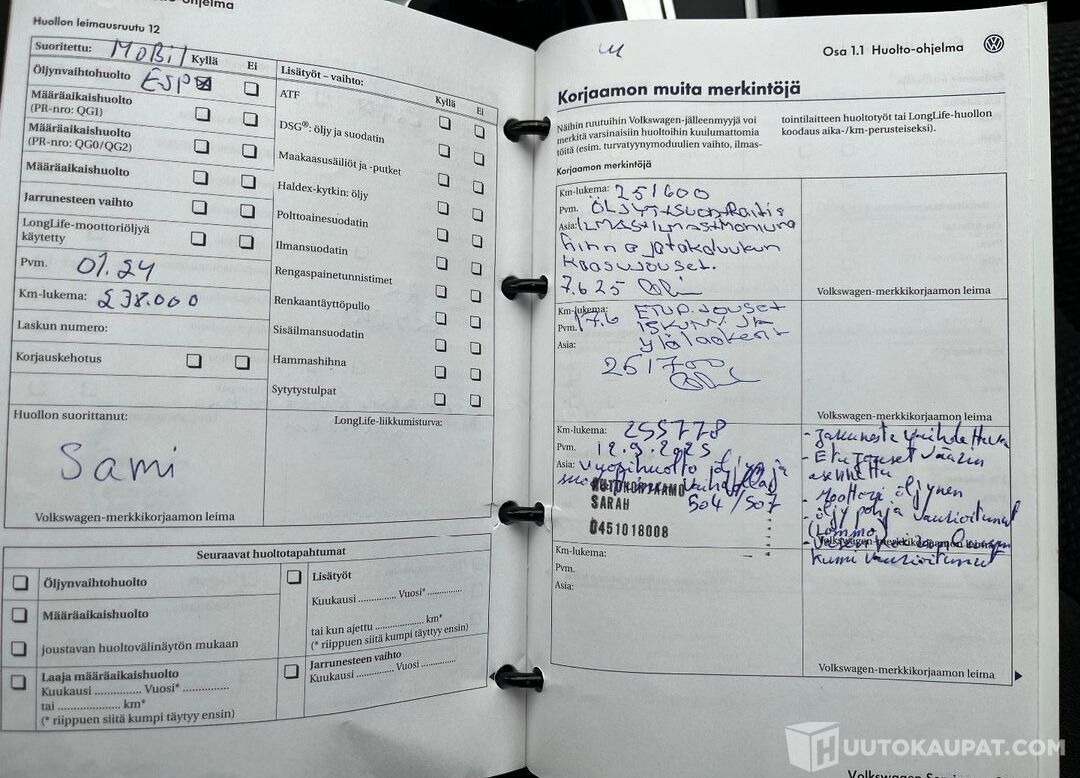 Huollon leimausruutu 12
Suoritettu: MOBIL
ESP
Kyllä Ei
Öljynvaihtohuolto
Määräaikaishuolto
(PR-nro: QG1)
Määräaikaishuolto
(PR-nro: QG0/QG2)
Määräaikaishuolto
Jarrunesteen vaihto
LongLife-moottoriöljyä
käytetty
Pvm. 01.24
Km-lukema: 238.000
Laskun numero:
Korjauskehotus
Huollon suorittanut:
Sami
Volkswagen-merkkikorjaamon leima
Lisätyöt – vaihto:
Kyllä Ei
ATF
DSG®: öljy ja suodatin
Maakaasusäiliöt ja -putket
Haldex-kytkin: öljy
Polttoainesuodatin
Ilmansuodatin
Rengaspainetunnistimet
Renkaantäyttöpullo
Sisäilmansuodatin
Hammashihna
Sytytystulpat
LongLife-liikkumisturva:
Seuraavat huoltotapahtumat
Öljynvaihtohuolto
Määräaikaishuolto
joustavan huoltovälinäytön mukaan
Laaja määräaikaishuolto
Kuukausi .............. Vuosi* ..............
tai .................... km*
(* riippuen siitä kumpi täytyy ensin)
Lisätyöt
Kuukausi .............. Vuosi* ..............
tai kun ajettu .................... km*
(* riippuen siitä kumpi täyttyy ensin)
Jarrunesteen vaihto
Kuukausi .............. Vuosi ..............
Osa 1.1 Huolto-ohjelma
Korjaamon muita merkintöjä
Näihin ruutuihin Volkswagen-jälleenmyyjä voi
merkitä varsinaisiin huoltoihin kuulumattomia
töitä (esim. turvatyynymoduulien vaihto, ilmas-
tointilaitteen huoltotyöt tai LongLife-huollon
koodaus aika-/km-perusteiseksi).
Korjaamon merkintöjä
Km-lukema: 251600
Pvm. ÖLJYT+suod.
Asia: ILMAS+ILMAS
hinna ja takaluukun
kaasujouset.
7.6 25
Volkswagen-merkkikorjaamon leima
Km-lukema: ETUP. Jouset
Pvm. 17.6 ISKUN. JA
Asia: ylälaakerit
251700
Volkswagen-merkkikorjaamon leima
Km-lukema: 255778
Pvm. 12.9.2025
Asia: Vuosihuolto öljyn ja
504/507
AUTOKORJAAMO
SARAH
0451018008
- Jarruneste vaihdettava
- Etujouset väärin
asennettu
- Moottori öljynen
- öljy pohja vaurioitunut
(Lommo)
kumi vaurioitunut
Volkswagen-merkkikorjaamon leima
Km-lukema:
Pvm.
Asia:
Volkswagen-merkkikorjaamon leima
HUUTOKAUPAT.COM